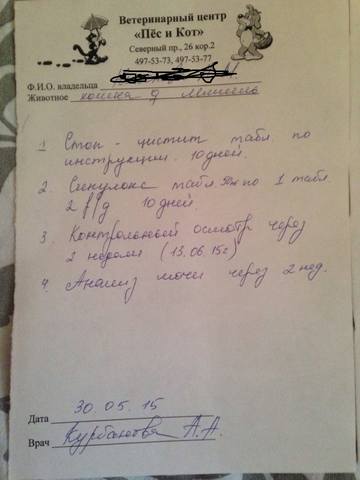 Ветеринарный центр
«Пёс и Кот»
Северный пр., 26 кор.2
497-53-73, 497-53-77
Ф.И.О. владельца
Животное кошка ♀ Мишель
1 Стоп - цистит табл. по
инструкции. 10 дней.
2. Синулокс табл. по 1 табл.
2 р/д 10 дней.
3 Контрольный осмотр через
2 недели (13.06.15г)
4. Анализ мочи через 2 нед.
Дата 30.05.15
Врач Курбанова А.А.